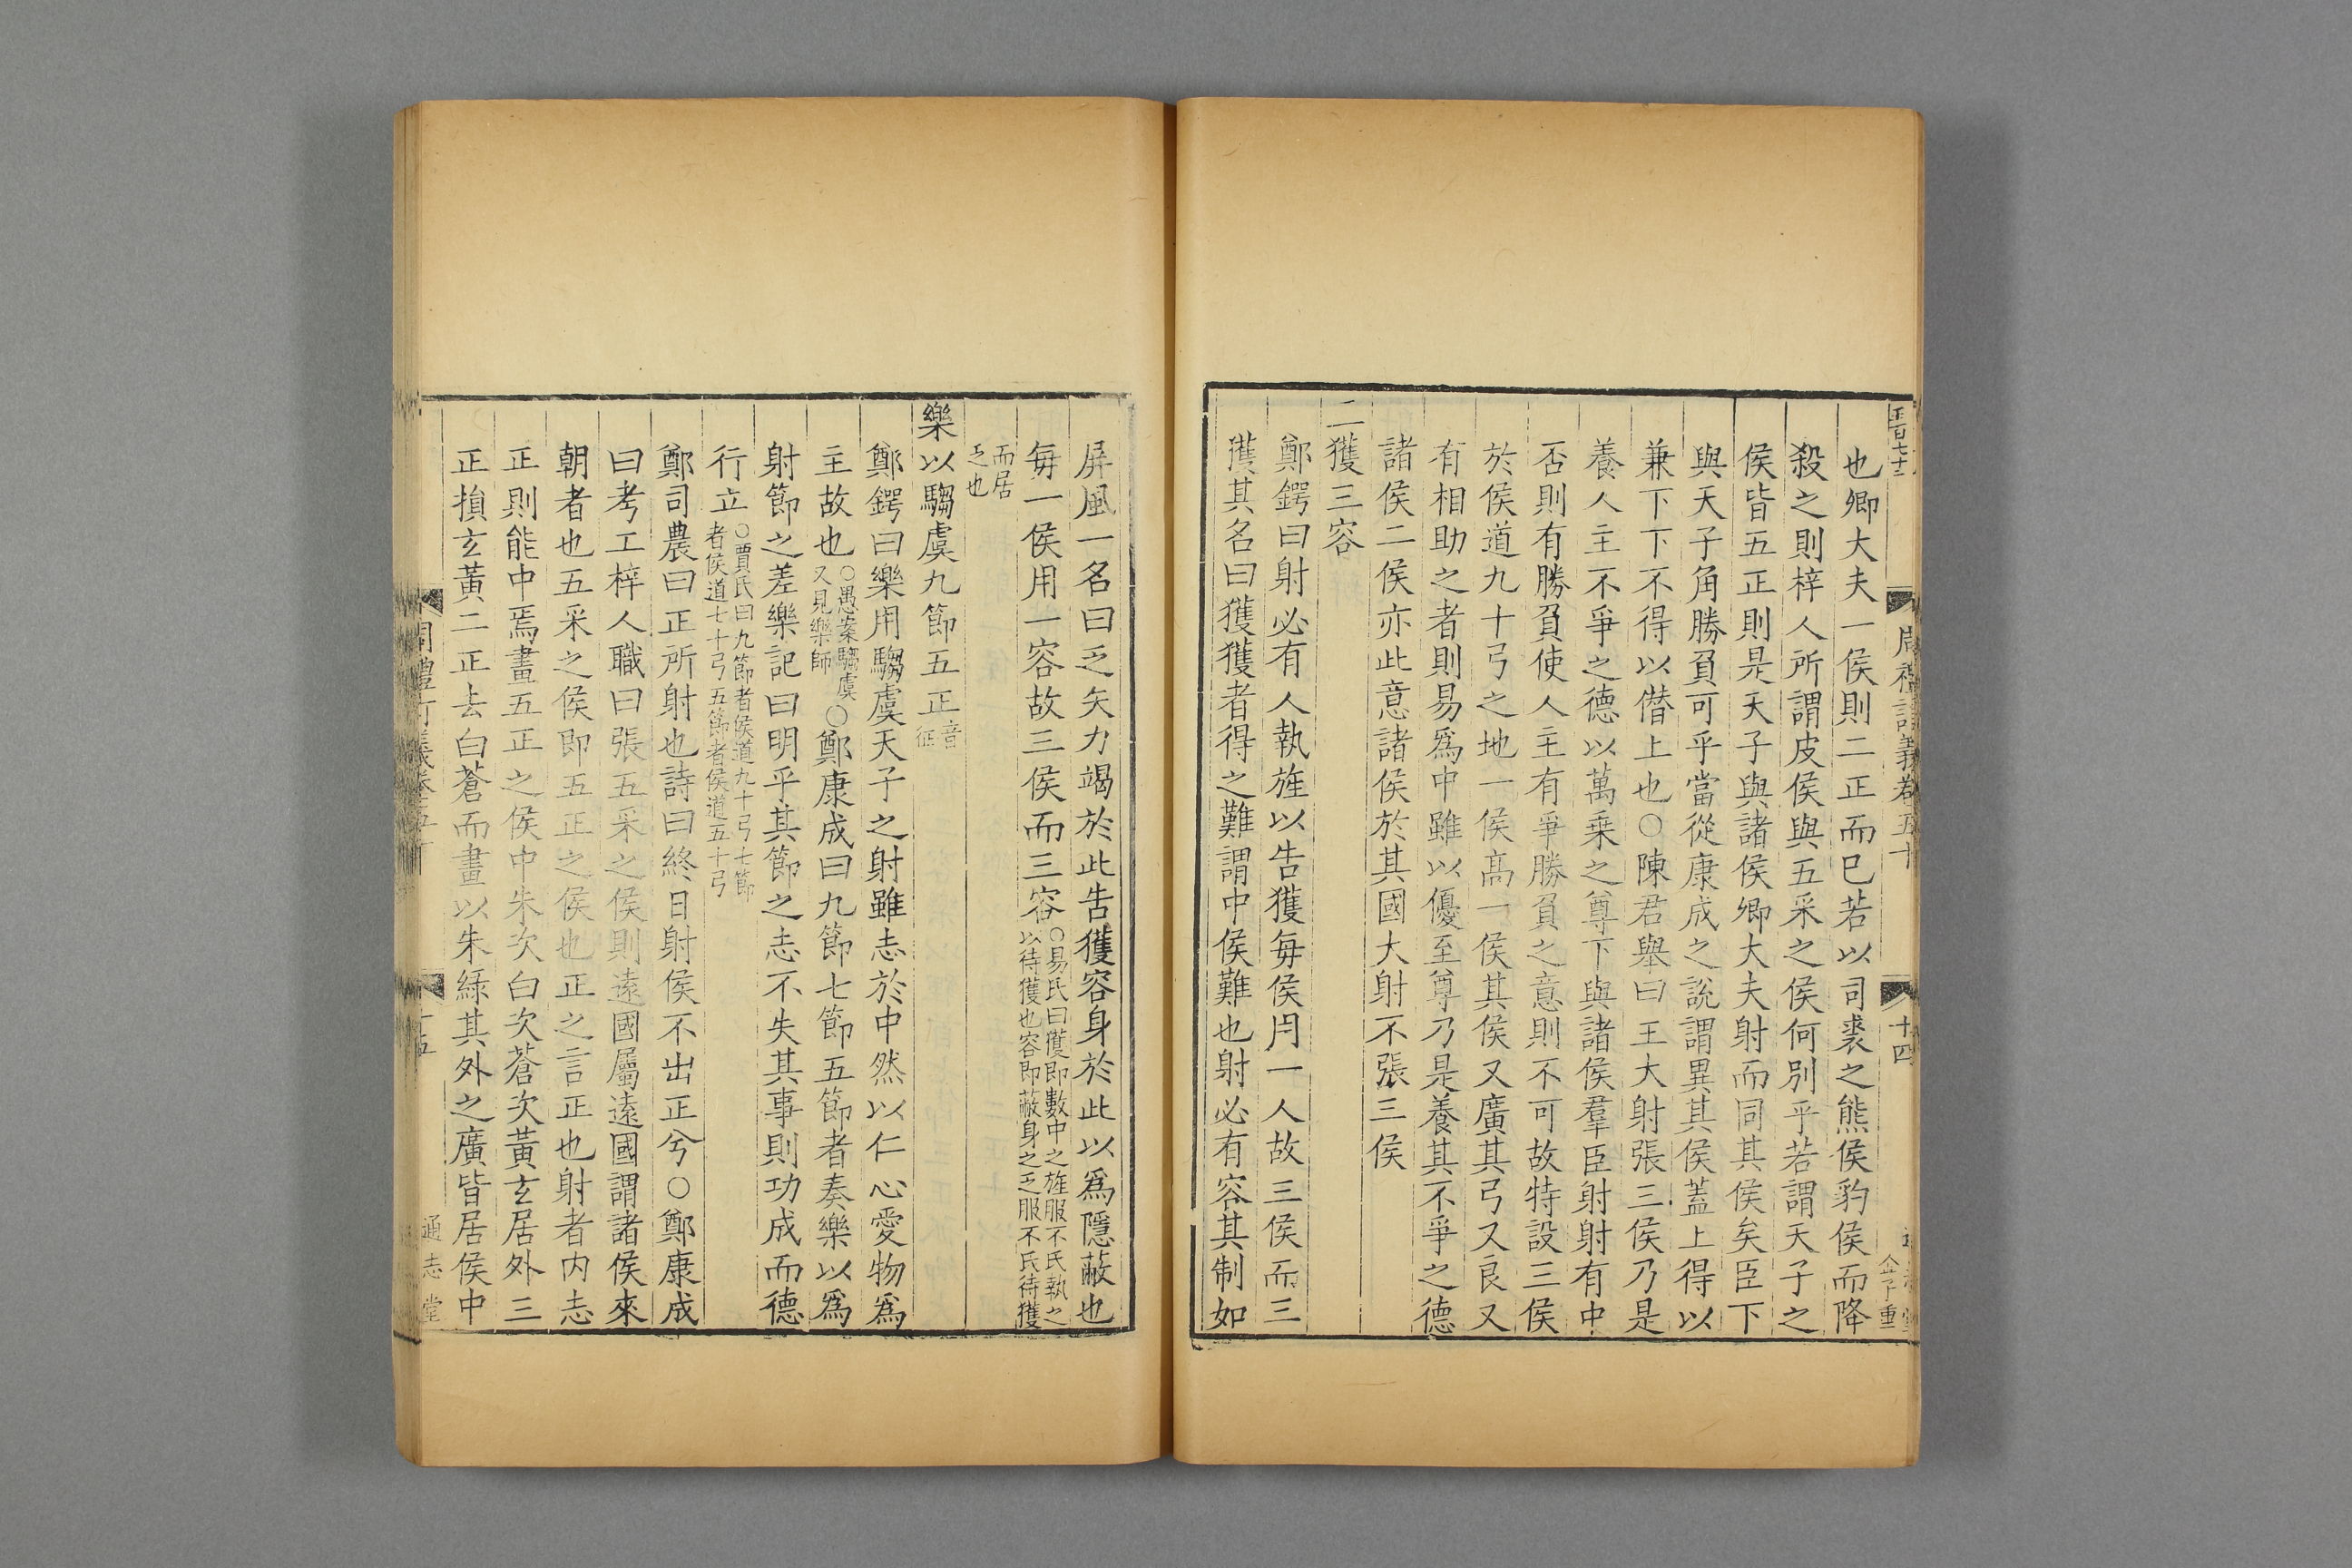 也卿大夫一侯則二正而已若以司裘之熊侯豹侯而降
殺之則梓人所謂皮侯與五采之侯何別乎若謂天子之
侯皆五正則是天子與諸侯卿大夫射而同其侯矣臣下
與天子角勝負可乎當從康成之說謂異其侯蓋上得以
兼下下不得以僣上也○陳君舉曰王大射張三侯乃是
養人主不爭之德以萬乗之尊下與諸侯羣臣射射有中
否則有勝負使人主有爭勝負之意則不可故特設三侯
於侯道九十弓之地一侯髙一侯其侯又廣其弓又良又
有相助之者則易爲中雖以優至尊乃是養其不爭之德
諸侯二侯亦此意諸侯於其國大射不張三侯
二獲三容
鄭鍔曰射必有人執旌以告獲毎侯用一人故三侯而三
獲其名曰獲獲者得之難謂中侯難也射必有容其制如
十四
屏風一名曰乏矢力竭於此告獲容身於此以爲隱蔽也
毎一侯用一容故三侯而三容○易氏曰獲即數中之旌服不氏執之以待獲也容即蔽身之乏服不氏待獲
而居乏也
樂以騶虞九節五正音征
鄭鍔曰樂用騶虞天子之射雖志於中然以仁心愛物爲
主故也○愚案騶虞又見樂師○鄭康成曰九節七節五節者奏樂以爲
射節之差樂記曰明乎其節之志不失其事則功成而德
行立○賈氏曰九節者侯道九十弓七節者侯道七十弓五節者侯道五十弓
鄭司農曰正所射也詩曰終日射侯不出正兮○鄭康成
曰考工梓人職曰張五采之侯則遠國屬遠國謂諸侯來
朝者也五采之侯即五正之侯也正之言正也射者内志
正則能中焉畫五正之侯中朱次白次蒼次黃玄居外三
正損玄黃二正去白蒼而畫以朱綠其外之廣皆居侯中
通志堂